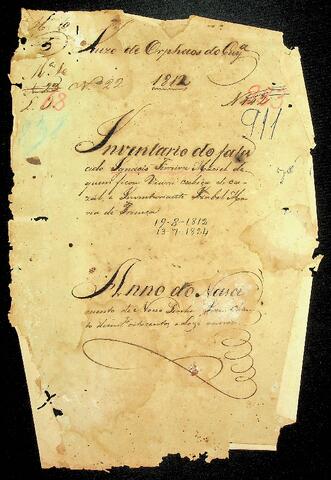 5 Juizo de Orphaos do
Nº 22 1812
68
911
Inventario do fale
cido Ignacio Ferreira Maciel de
quem ficou Viuva cabeça de ca
zal e Inventariante Izabel Ma
ria de
19-8-1812
13-7-1824
Anno do Nasci
mento de Nosso Senhor Jesus Chris
to de mil oitocentos e doze annos